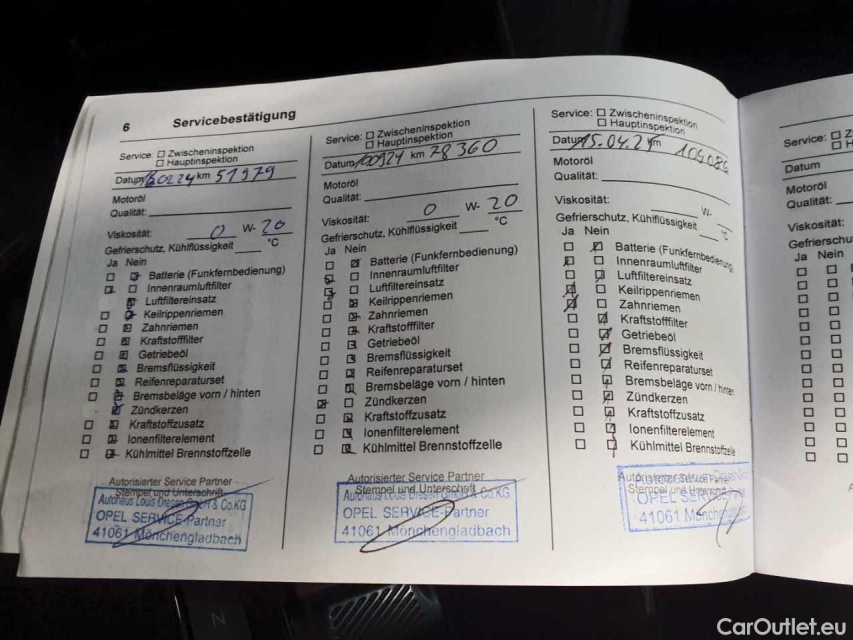 6 Servicebestätigung
Service: ☐ Zwischeninspektion
☐ Hauptinspektion
Datum 160224 km 51979
Motoröl
Qualität:
Viskosität: 0 W- 20
Gefrierschutz, Kühlflüssigkeit °C
Ja Nein
Batterie (Funkfernbedienung)
Innenraumluftfilter
Luftfiltereinsatz
Keilrippenriemen
Zahnriemen
Kraftstofffilter
Getriebeöl
Bremsflüssigkeit
Reifenreparaturset
Bremsbeläge vorn / hinten
Zündkerzen
Kraftstoffzusatz
Ionenfilterelement
Kühlmittel Brennstoffzelle
Autorisierter Service Partner
Stempel und Unterschrift
Autohaus Louis Dresen GmbH & Co.KG
OPEL SERVICE-Partner
41061 Mönchengladbach
Service: ☐ Zwischeninspektion
☐ Hauptinspektion
Datum 100924 km 78360
Motoröl
Qualität:
Viskosität: 0 W- 20
Gefrierschutz, Kühlflüssigkeit °C
Ja Nein
Batterie (Funkfernbedienung)
Innenraumluftfilter
Luftfiltereinsatz
Keilrippenriemen
Zahnriemen
Kraftstofffilter
Getriebeöl
Bremsflüssigkeit
Reifenreparaturset
Bremsbeläge vorn / hinten
Zündkerzen
Kraftstoffzusatz
Ionenfilterelement
Kühlmittel Brennstoffzelle
Autorisierter Service Partner
Stempel und Unterschrift
Autohaus Louis Dresen GmbH & Co.KG
OPEL SERVICE-Partner
41061 Mönchengladbach
Service: ☐ Zwischeninspektion
☐ Hauptinspektion
Datum 15.04.25 km
Motoröl
Qualität:
Viskosität: W-
Gefrierschutz, Kühlflüssigkeit °C
Ja Nein
Batterie (Funkfernbedienung)
Innenraumluftfilter
Luftfiltereinsatz
Keilrippenriemen
Zahnriemen
Kraftstofffilter
Getriebeöl
Bremsflüssigkeit
Reifenreparaturset
Bremsbeläge vorn / hinten
Zündkerzen
Kraftstoffzusatz
Ionenfilterelement
Kühlmittel Brennstoffzelle
Autorisierter Service Partner
Stempel und Unterschrift
OPEL SERVICE
41061 Mönchengladbach
Service: ☐ Z
☐ H
Datum
Motoröl
Qualität:
Viskosität:
Gefrierschu
Ja Nein
N
CarOutlet.eu